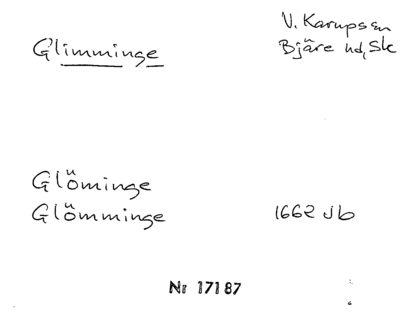 Glimminge
V. Karupssn
Bjäre hd, Sk
Glöminge
Glömminge 1662 Jb
Nr 17187